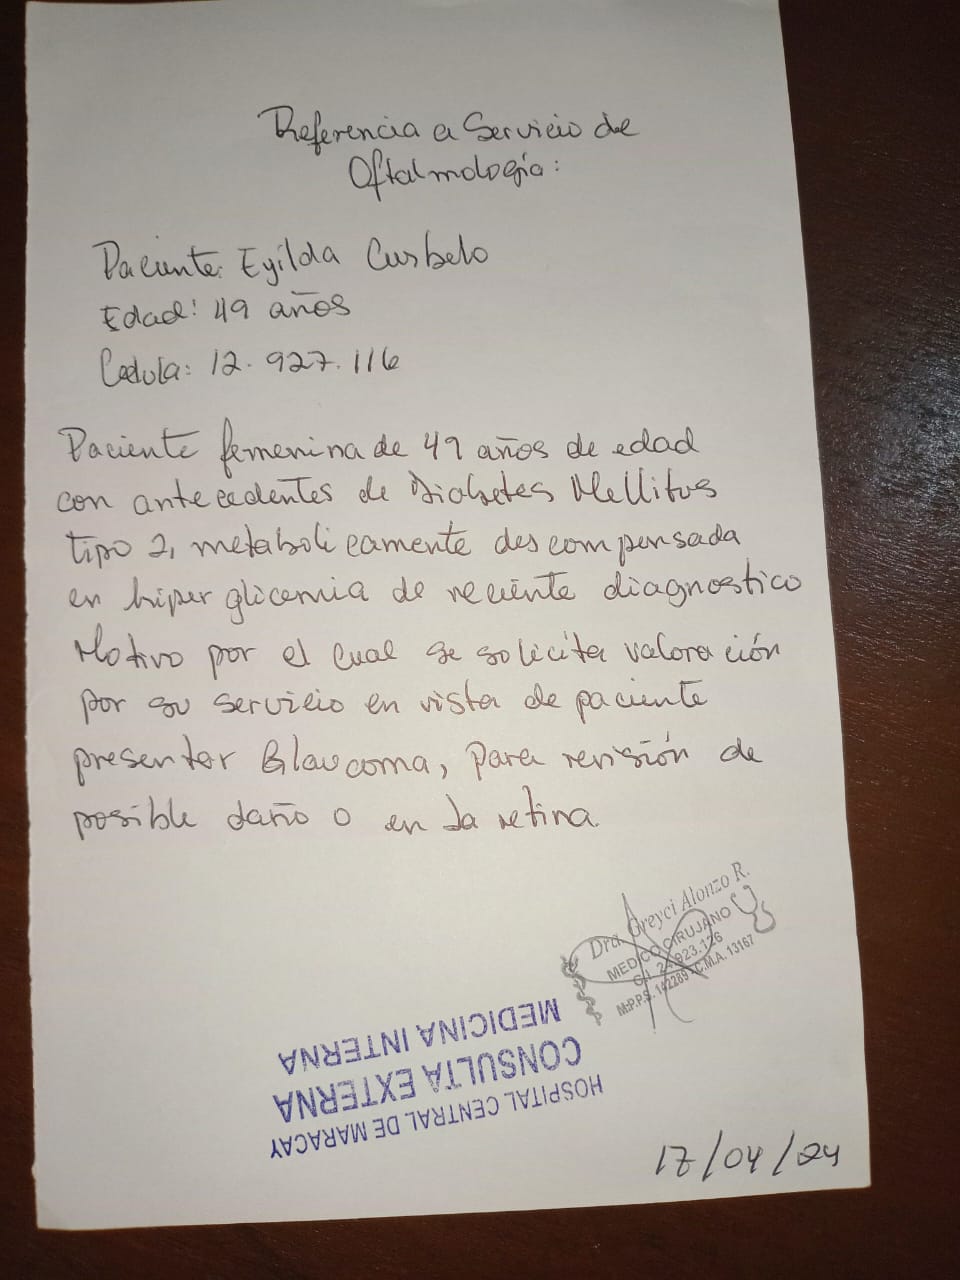 Referencia a Servicio de
Oftalmología:
Paciente: Egilda Curbelo
Edad: 49 años
Cedula: 12.927.116
Paciente femenina de 49 años de edad
con antecedentes de Diabetes Mellitus
tipo 2, metabolicamente descompensada
en hiperglicemia de reciente diagnostico
Motivo por el cual se solicita valoración
por su servicio en vista de paciente
presentar Glaucoma, para revisión de
posible daño o en la retina.
Dra. Greyci Alonzo R.
MEDICO CIRUJANO
C.I. 24.923.126
M.P.P.S. 142289 - C.M.A. 13167
HOSPITAL CENTRAL DE MARACAY
CONSULTA EXTERNA
MEDICINA INTERNA
17/04/24